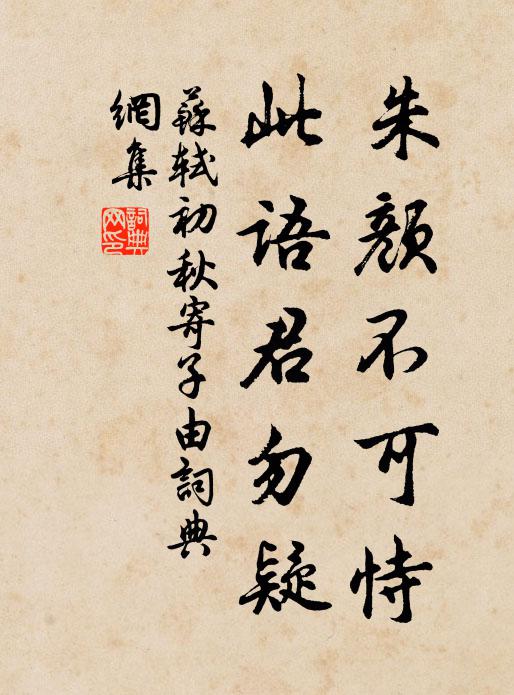 朱顏不可恃
此語君勿疑
蘇軾初秋寄子由詞典
網集
詞典网印